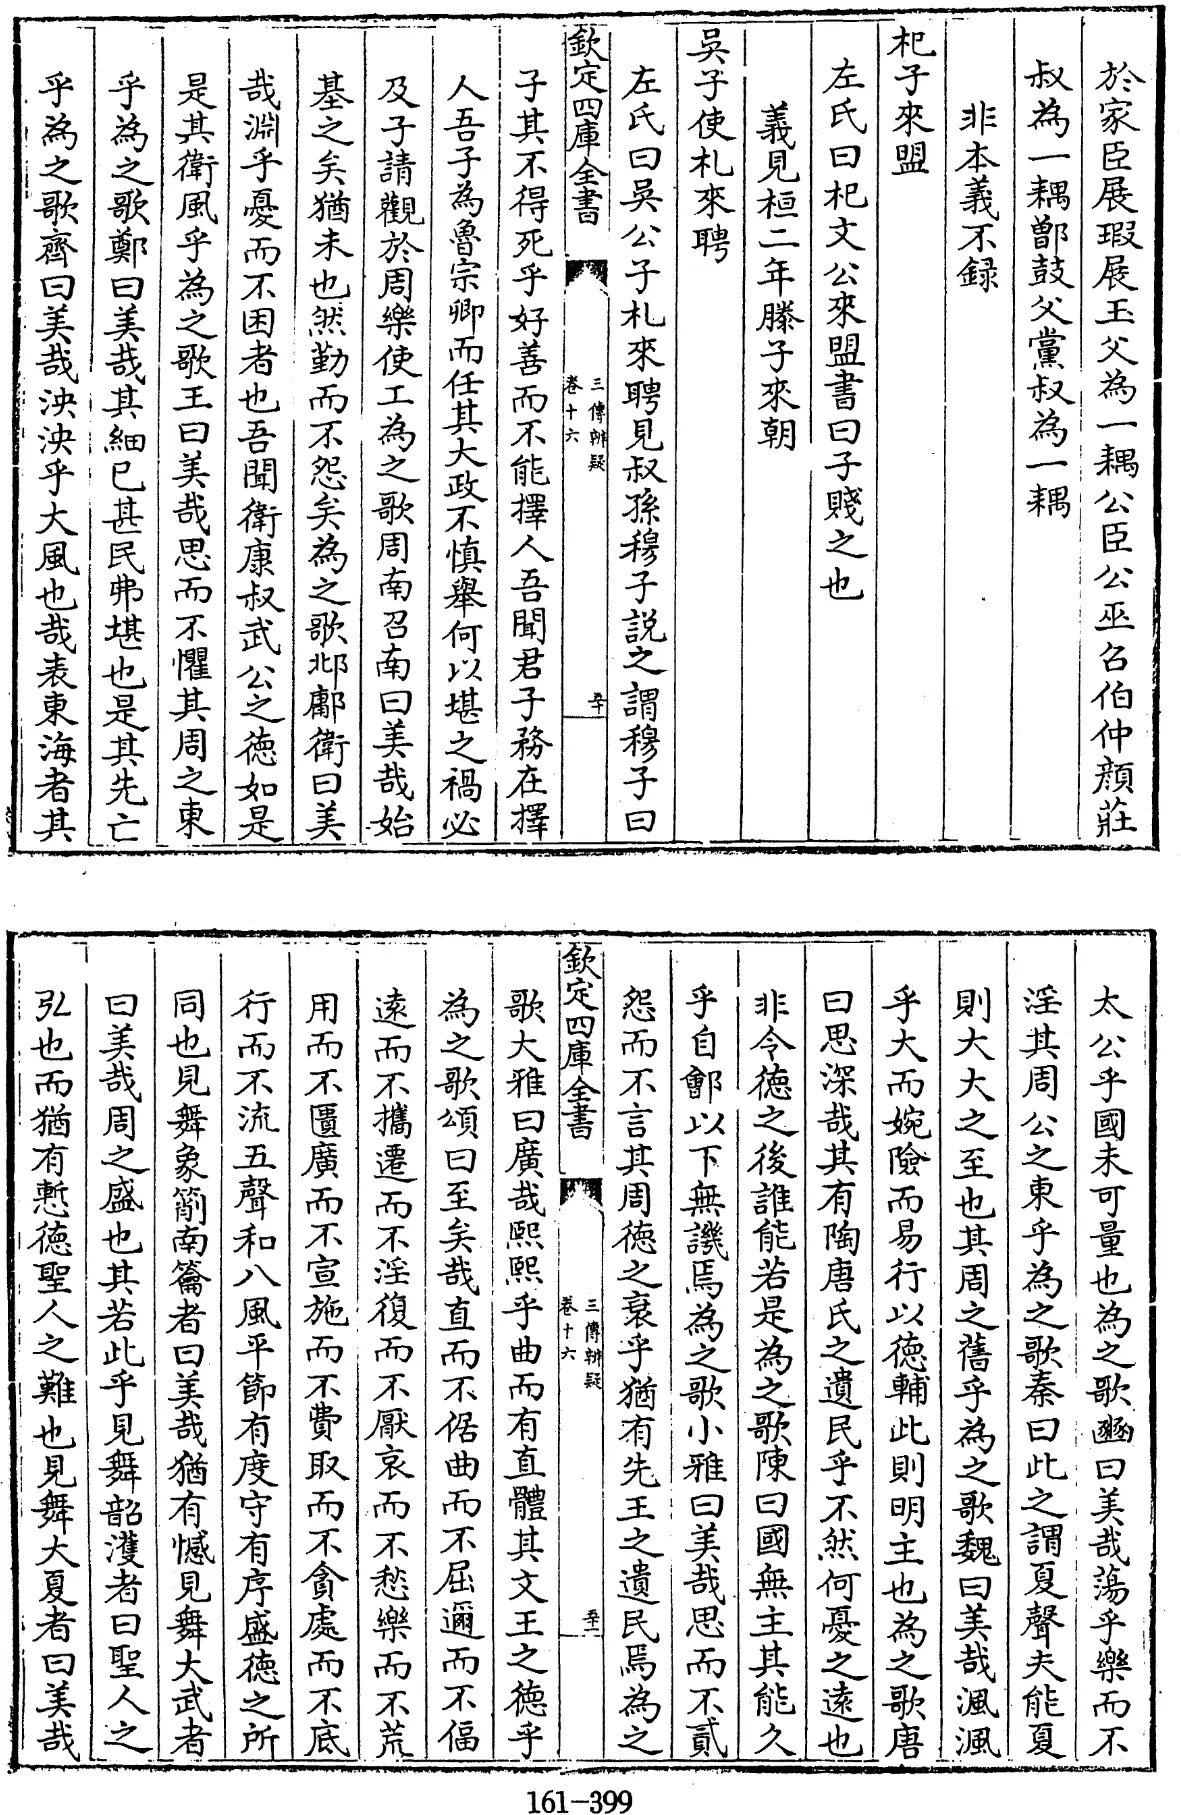 於家臣展瑕展玉父為一耦公臣公巫召伯仲顔莊
叔為一耦鄫鼓父黨叔為一耦
非本義不録
杞子來盟
左氏曰杞文公來盟書曰子賤之也
義見桓二年滕子來朝
吳子使札來聘
左氏曰吳公子札來聘見叔孫穆子説之謂穆子曰
欽定四庫全書
三傳辨疑
卷十六
五十
子其不得死乎好善而不能擇人吾聞君子務在擇
人吾子為魯宗卿而任其大政不慎舉何以堪之禍必
及子請觀於周樂使工為之歌周南召南曰美哉始
基之矣猶未也然勤而不怨矣為之歌邶鄘衛曰美
哉淵乎憂而不困者也吾聞衛康叔武公之徳如是
是其衛風乎為之歌王曰美哉思而不懼其周之東
乎為之歌鄭曰美哉其細已甚民弗堪也是其先亡
乎為之歌齊曰美哉泱泱乎大風也哉表東海者其
太公乎國未可量也為之歌豳曰美哉蕩乎樂而不
淫其周公之東乎為之歌秦曰此之謂夏聲夫能夏
則大大之至也其周之舊乎為之歌魏曰美哉渢渢
乎大而婉險而易行以徳輔此則明主也為之歌唐
曰思深哉其有陶唐氏之遺民乎不然何憂之遠也
非令徳之後誰能若是為之歌陳曰國無主其能久
乎自鄶以下無譏焉為之歌小雅曰美哉思而不貳
怨而不言其周徳之衰乎猶有先王之遺民焉為之
欽定四庫全書
三傳辨疑
卷十六
歌大雅曰廣哉熙熙乎曲而有直體其文王之徳乎
為之歌頌曰至矣哉直而不倨曲而不屈邇而不偪
遠而不攜遷而不淫復而不厭哀而不愁樂而不荒
用而不匱廣而不宣施而不費取而不貪處而不底
行而不流五聲和八風平節有度守有序盛徳之所
同也見舞象箾南籥者曰美哉猶有憾見舞大武者
曰美哉周之盛也其若此乎見舞韶濩者曰聖人之
弘也而猶有慙徳聖人之難也見舞大夏者曰美哉
161-399